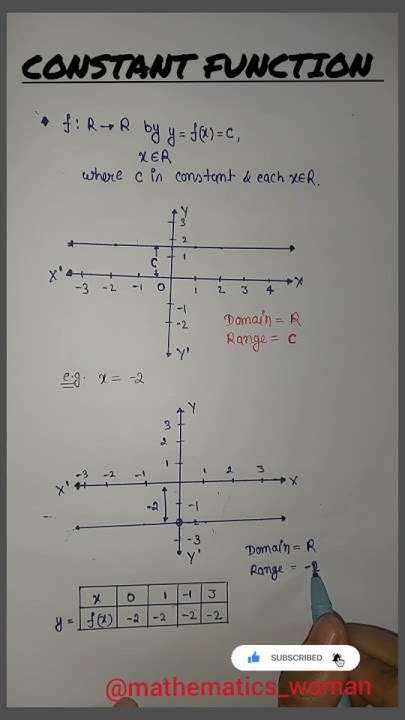 CONSTANT FUNCTION
f : R → R by y = f(x) = C,
x ∈ R
where C is constant & each x∈R.
Y
3
2
C
1
X' -3 -2 -1 0 1 2 3 4 X
-1
-2
Y'
Domain = R
Range = C
e.g. x = -2
Y
3
2
1
-3 -2 -1 1 2 3
X' X
-2 -1
-3
Y'
Domain = R
Range = -2
x 0 1 -1 3
y = f(x) -2 -2 -2 -2
SUBSCRIBED
@mathematics_woman